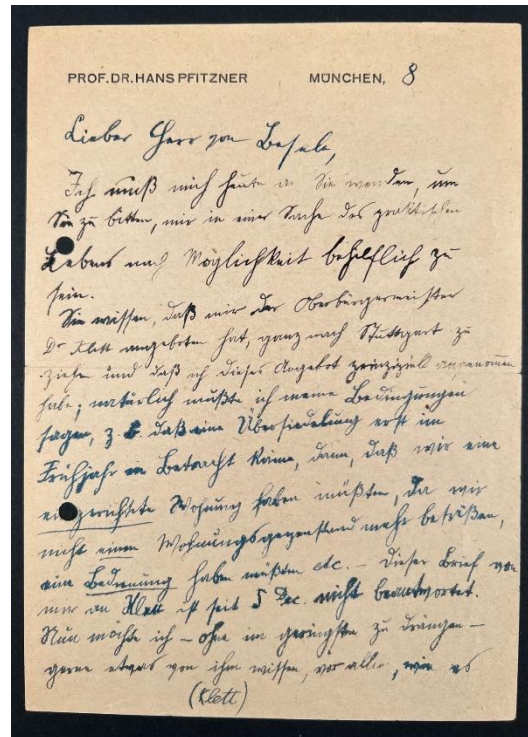 PROF. DR. HANS PFITZNER MÜNCHEN, 8
Lieber Herr von
Ich muß mich heute an Sie wenden, um
Sie zu bitten, mir in einer Sache des praktischen
Lebens nach Möglichkeit behilflich zu
sein.
Sie wissen, daß mir der Oberbürgermeister
Dr Klett angeboten hat, ganz nach Stuttgart zu
ziehen und daß ich dieses Angebot prinzipiell angenommen
habe; natürlich mußte ich meine Bedingungen
sagen, z. B. daß eine Übersiedelung erst im
Frühjahr in Betracht käme, dann, daß wir eine
eingerichtete Wohnung haben müßten, da wir
nicht einen Wohnungsgegenstand mehr besäßen,
eine Bedienung haben müßten etc. – Dieser Brief von
mir an Klett ist seit 5 Dec. nicht beantwortet.
Nun möchte ich – ohne im geringsten zu drängen –
gerne etwas von ihm wissen, vor allem, wie es
(Klett)